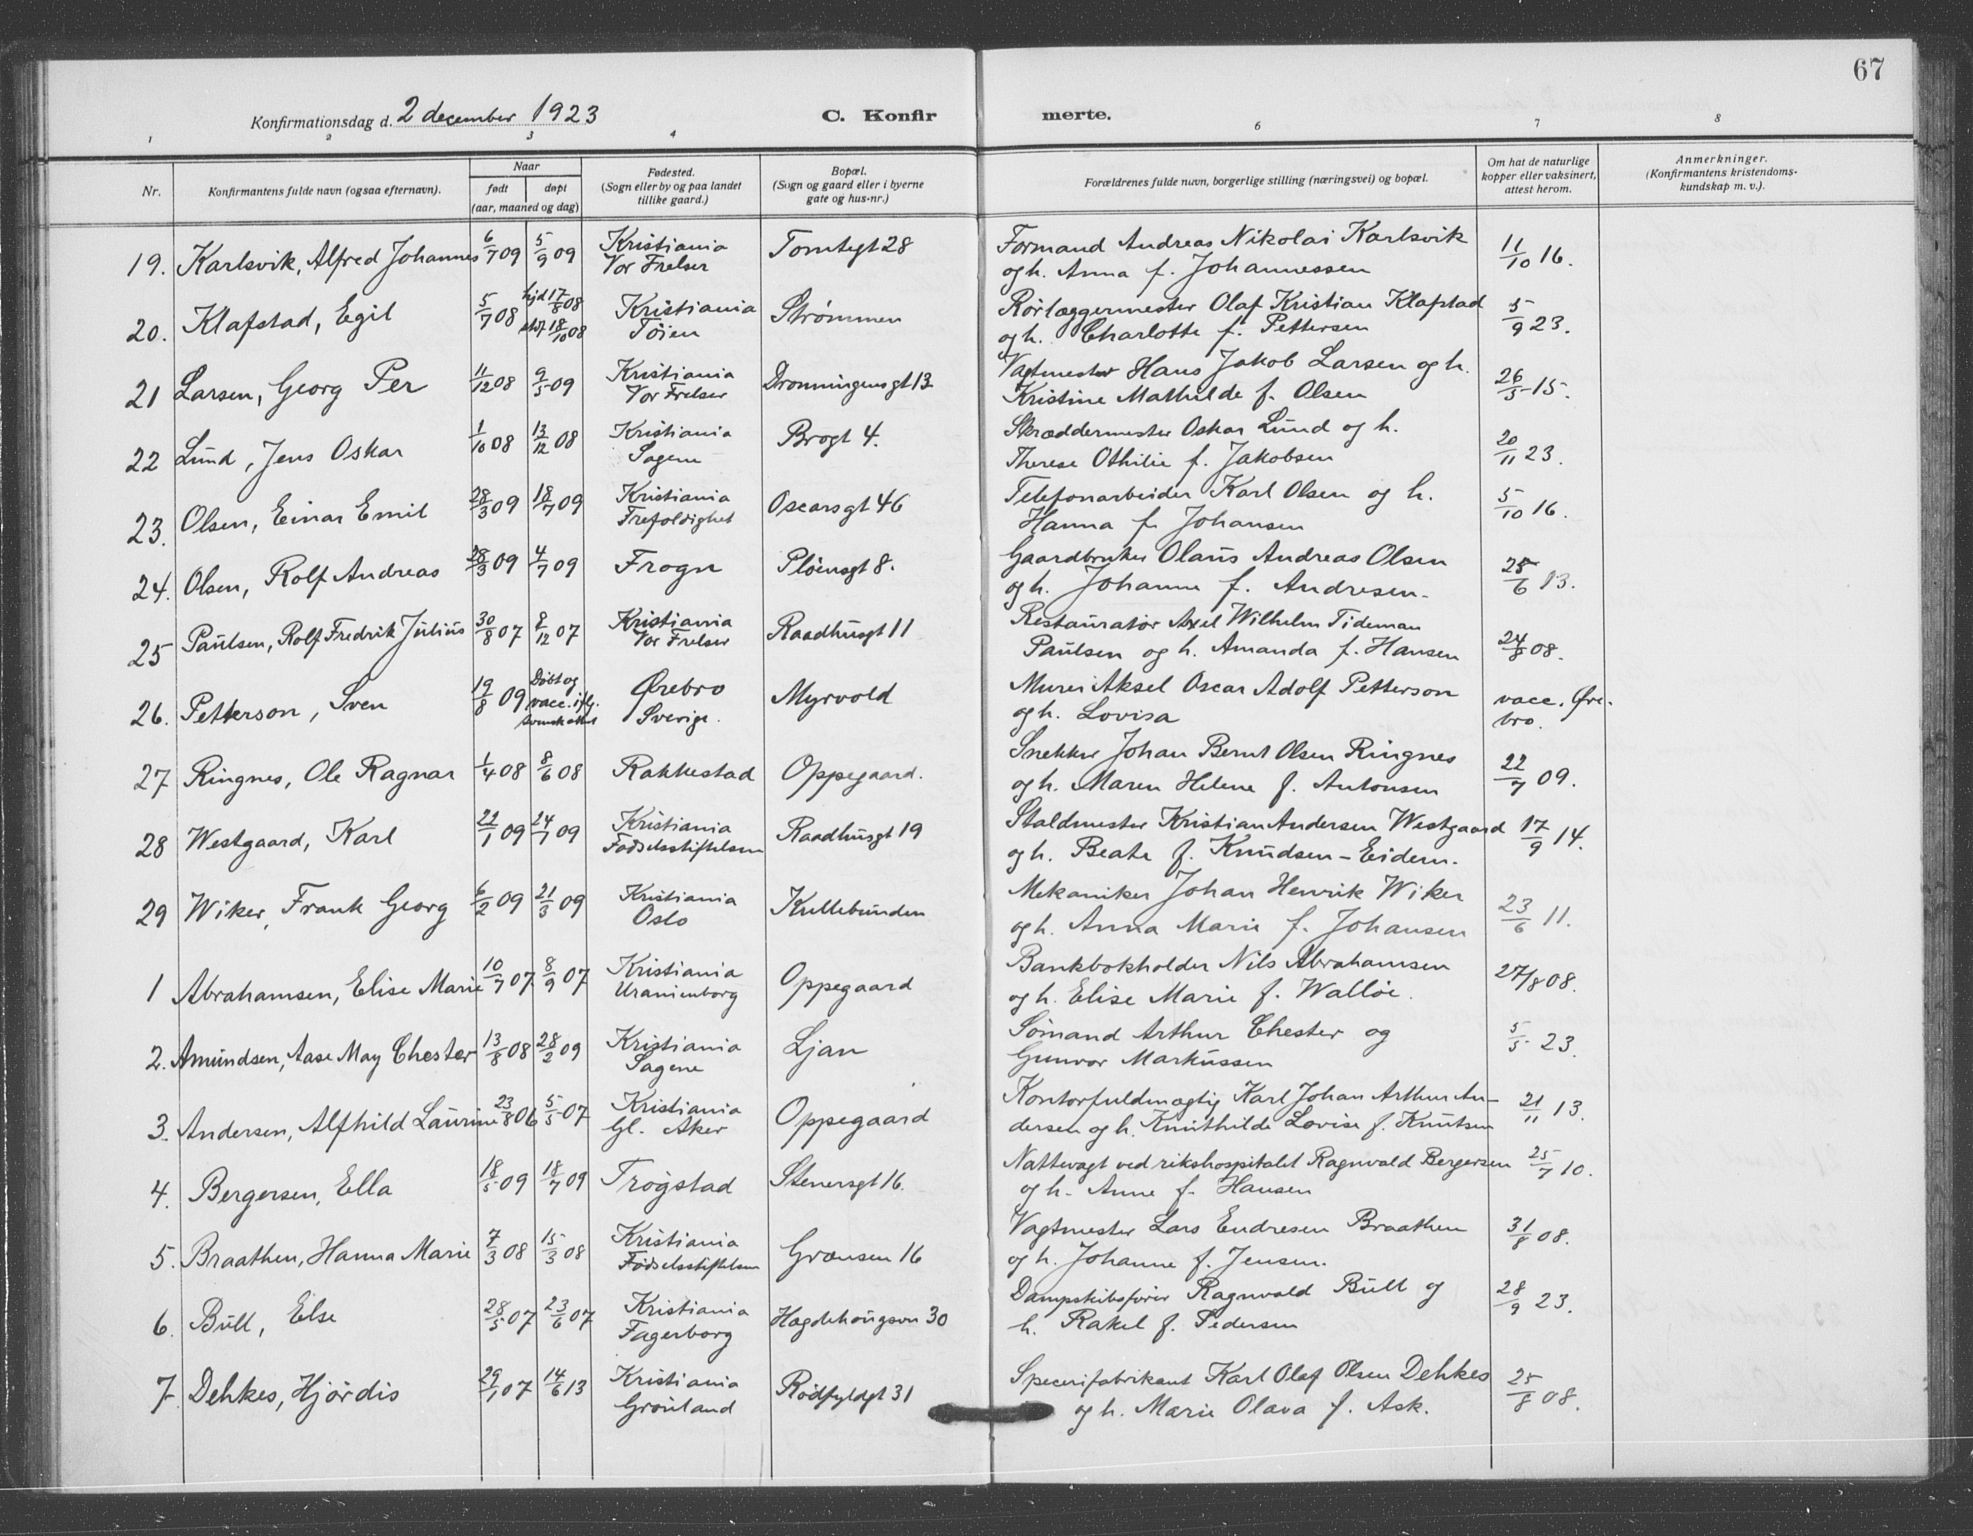 67
Konfirmationsdag d. 2 december 1923 C. Konfir merte.
1 2 3 4 6 7 8
Nr. Konfirmantens fulde navn (ogsaa efternavn). Naar født døpt (aar, maaned og dag) Fødested. (Sogn eller by og paa landet tillike gaard.) Bopæl. (Sogn og gaard eller i byerne gate og hus-nr.) Forældrenes fulde navn, borgerlige stilling (næringsvei) og bopæl. Om hat de naturlige kopper eller vaksinert, attest herom. Anmerkninger. (Konfirmantens kristendoms-kundskap m. v.).
19. Karlsvik, Alfred Johannes 6/7 09 5/9 09 Kristiania Vor Frelser Tomtegt 28 Formand Andreas Nikolai Karlsvik og h. Anna f. Johannessen 11/10 16.
20. Klafstad, Egil 5/7 08 hjd 17/8 08 stdf 18/10 08 Kristiania Tøien Strømmen Rørlæggermester Olaf Kristian Klafstad og h. Charlotte f. Pettersen 5/9 23.
21 Larsen, Georg Per 11/12 08 9/5 09 Kristiania Vor Frelser Dronningensgt 13 Vagtmester Hans Jakob Larsen og h. Kristine Mathilde f. Olsen 26/5 15.
22 Lund, Jens Oskar 1/10 08 13/12 08 Kristiania Sagene Brogt 4. Skræddermester Oskar Lund og h. Therese Othilie f. Jakobsen 20/11 23.
23. Olsen, Einar Emil 28/3 09 18/7 09 Kristiania Trefoldighet Oscarsgt 46 Telefonarbeider Karl Olsen og h. Hanna f. Johansen 5/10 16.
24. Olsen, Rolf Andreas 28/3 09 4/7 09 Frogn Pløensgt 8. Gaardbruker Olaus Andreas Olsen og h. Johanne f. Andresen. 28/6 13.
25 Paulsen, Rolf Fredrik Julius 30/8 07 8/12 07 Kristiania Vor Frelser Raadhusgt 11 Restauratør Axel Wilhelm Tideman Paulsen og h. Amanda f. Hansen 24/8 08.
26. Petterson, Sven 19/8 09 Døbt og vacc. iflg. svensk attest Ørebro Sverige. Myrvold Murer Aksel Oscar Adolf Petterson og h. Lovisa vacc. Ørebro.
27 Ringnes, Ole Ragnar 1/4 08 8/6 08 Rakkestad Oppegaard. Snekker Johan Bernt Olsen Ringnes og h. Maren Helene f. Antonsen 22/7 09.
28 Westgaard, Karl 22/1 09 24/7 09 Kristiania Fødselsstiftelsen Raadhusgt 19 Staldmester Kristian Andersen Westgaard og h. Beate f. Knudsen-Eidem. 17/9 14.
29 Wiker, Frank Georg 6/2 09 21/3 09 Kristiania Oslo Kullebunden Mekaniker Johan Henrik Wiker og h. Anna Marie f. Johansen 23/6 11.
1 Abrahamsen, Elise Marie 10/7 07 8/9 07 Kristiania Uranienborg Oppegaard Bankbokholder Nils Abrahamsen og h. Elise Marie f. Walløe. 27/8 08.
2. Amundsen, Aase May Chester 13/8 08 28/2 09 Kristiania Sagene Ljan Sømand Arthur Chester og Gunvor Markussen 5/5 23.
3. Andersen, Alfhild Laurine 23/8 06 5/5 07 Kristiania Gl. Aker Oppegaard Kontorfuldmægtig Karl Johan Arthur Andersen og h. Knuthilde Lovise f. Knutsen 21/11 13.
4. Bergersen, Ella 18/5 09 18/7 09 Trøgstad Stenersgt 16. Nattevagt ved rikshospitalet Ragnvald Bergersen og h. Anne f. Hansen 25/7 10.
5. Braathen, Hanna Marie 7/3 08 15/3 08 Kristiania Fødselsstiftelsen Grænsen 16 Vagtmester Lars Endresen Braathen og h. Johanne f. Jensen. 31/8 08.
6. Bull, Else 28/5 07 23/6 07 Kristiania Fagerborg Hægdehougsvn 30 Dampskibsfører Ragnvald Bull og h. Rakel f. Pedersen 28/9 23.
7 Dehkes, Hjørdis 29/1 07 14/6 13 Kristiania Grønland Rødfyldgt 31 Specerifabrikant Karl Olaf Olsen Dehkes og h. Marie Olava f. Ask. 25/8 08.